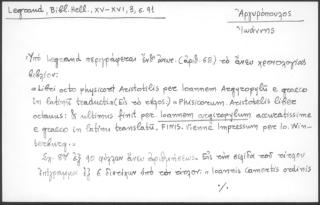 Legrand, Bibl. Hell., XV-XVI, 3, σ. 91
Ἀργυρόπουλος
Ἰωάννης
Ὑπὸ Legrand περιγράφεται ἔνθ' ἄνω (ἀριθ. 68) τὸ ἄνευ χρονολογίας
βιβλίον:
«Libri octo physicorum Aristotelis per Ioannem Argyropylu e graeco
in latinu traductia (Εἰς τὸ τέλος:) «Physicorum Aristotelis liber
octauus: & ultimus finit per Ioannem argiropylum accuratissime
e graeco in latinu translatu, FINIS. Vienne Impressum per Io. Win-
terburg».
Σχ. 8ον ἐξ 90 φύλλων ἄνευ ἀριθμήσεως. Εἰς τὴν σελίδα τοῦ τίτλου
ἐπίγραμμα ἐξ 6 διστίχων ὑπὸ τὸν τίτλον: «Ioannis Camertis ordinis
./.